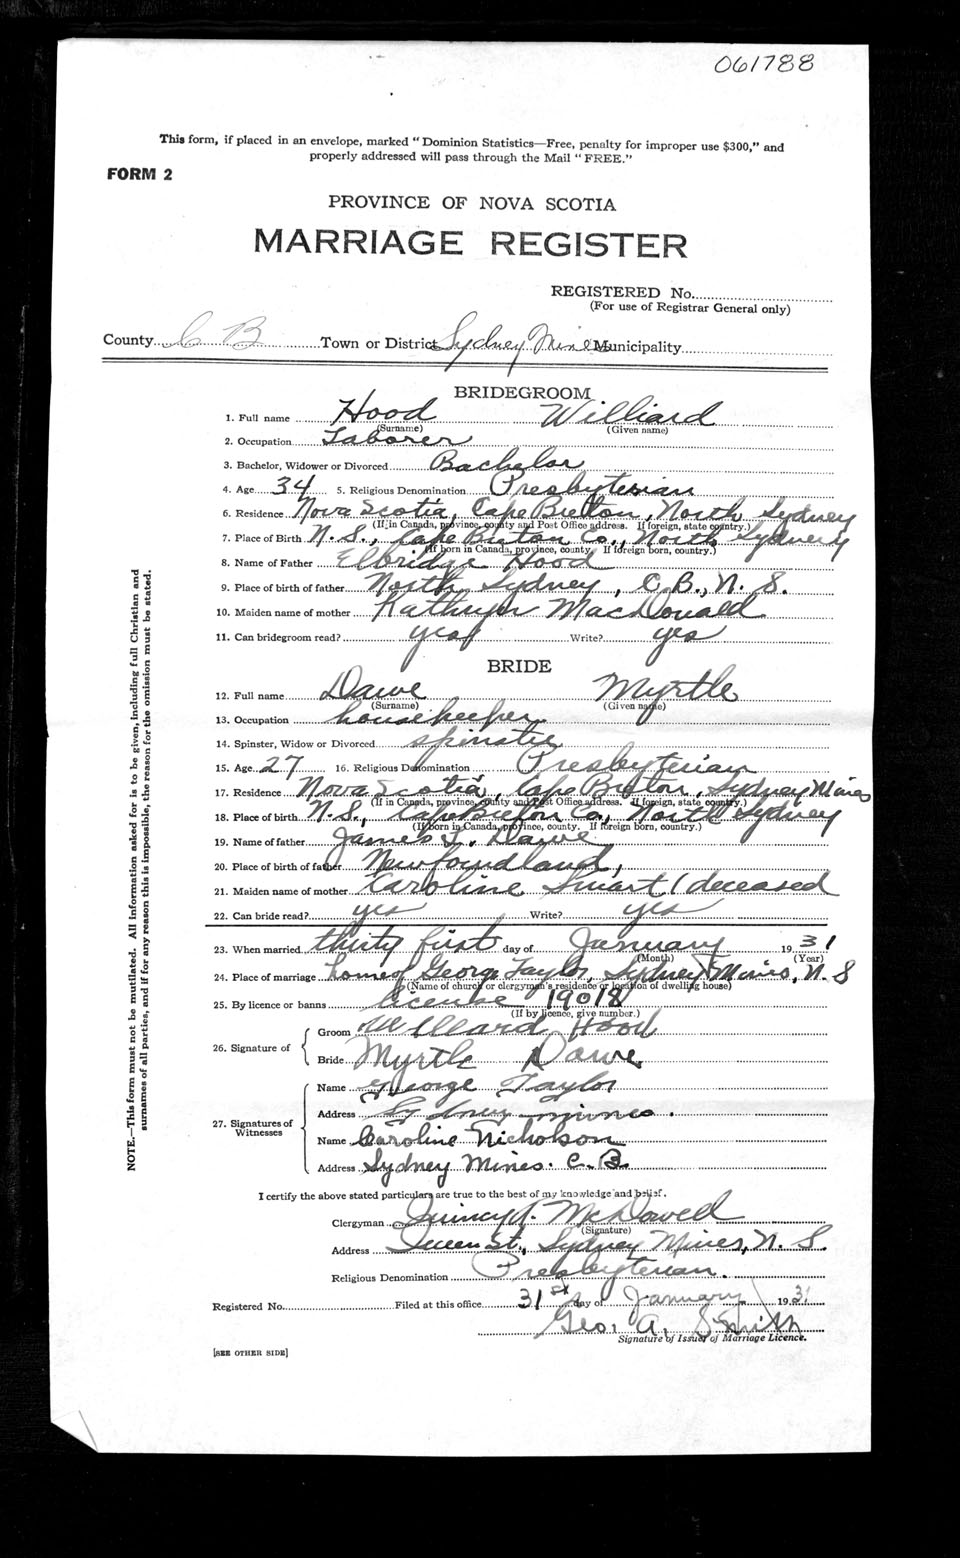 061788
This form, if placed in an envelope, marked "Dominion Statistics—Free, penalty for improper use $300," and
properly addressed will pass through the Mail "FREE."
FORM 2
PROVINCE OF NOVA SCOTIA
MARRIAGE REGISTER
REGISTERED No.
(For use of Registrar General only)
County C B Town or District Sydney Mines Municipality
BRIDEGROOM
1. Full name Hood Williard
(Surname) (Given name)
2. Occupation Laborer
3. Bachelor, Widower or Divorced Bachelor
4. Age 34 5. Religious Denomination Presbyterian
6. Residence Nova Scotia, Cape Breton, North Sydney
(If in Canada, province, county and Post Office address. If foreign, state country.)
7. Place of Birth N.S., Cape Breton Co., North Sydney
(If born in Canada, province, county. If foreign born, country.)
8. Name of Father Elbridge Hood
9. Place of birth of father North Sydney, C.B., N.S.
10. Maiden name of mother Kathryn MacDonald
11. Can bridegroom read? yes Write? yes
BRIDE
12. Full name Dawe Myrtle
(Surname) (Given name)
13. Occupation housekeeper
14. Spinster, Widow or Divorced spinster
15. Age 27 16. Religious Denomination Presbyterian
17. Residence Nova Scotia, Cape Breton, Sydney Mines
(If in Canada, province, county and Post Office address. If foreign, state country.)
18. Place of birth N.S., Cape Breton Co., North Sydney
(If born in Canada, province, county. If foreign born, country.)
19. Name of father James T. Dawe
20. Place of birth of father Newfoundland,
21. Maiden name of mother Caroline Smart (deceased
22. Can bride read? yes Write? yes
23. When married thirty first day of January 1931
(Month) (Year)
24. Place of marriage home of George Taylor, Sydney Mines, N.S
(Name of church or clergyman's residence or location of dwelling house)
25. By licence or banns license 19018
(If by licence, give number.)
26. Signature of
Groom Willard Hood
Bride Myrtle Dawe
27. Signatures of Witnesses
Name George Taylor
Address Sydney mines.
Name Caroline Nicholson
Address Sydney Mines. C.B.
I certify the above stated particulars are true to the best of my knowledge and belief.
Clergyman Quincy A. McDowell
(Signature)
Address Queen St., Sydney Mines, N.S.
Religious Denomination Presbyterian.
Registered No. Filed at this office 31st day of January 1931
Geo. A. Smith
Signature of Issuer of Marriage Licence.
[SEE OTHER SIDE]
NOTE.—This form must not be mutilated. All Information asked for is to be given, including full Christian and
surnames of all parties, and if for any reason this is impossible, the reason for the omission must be stated.